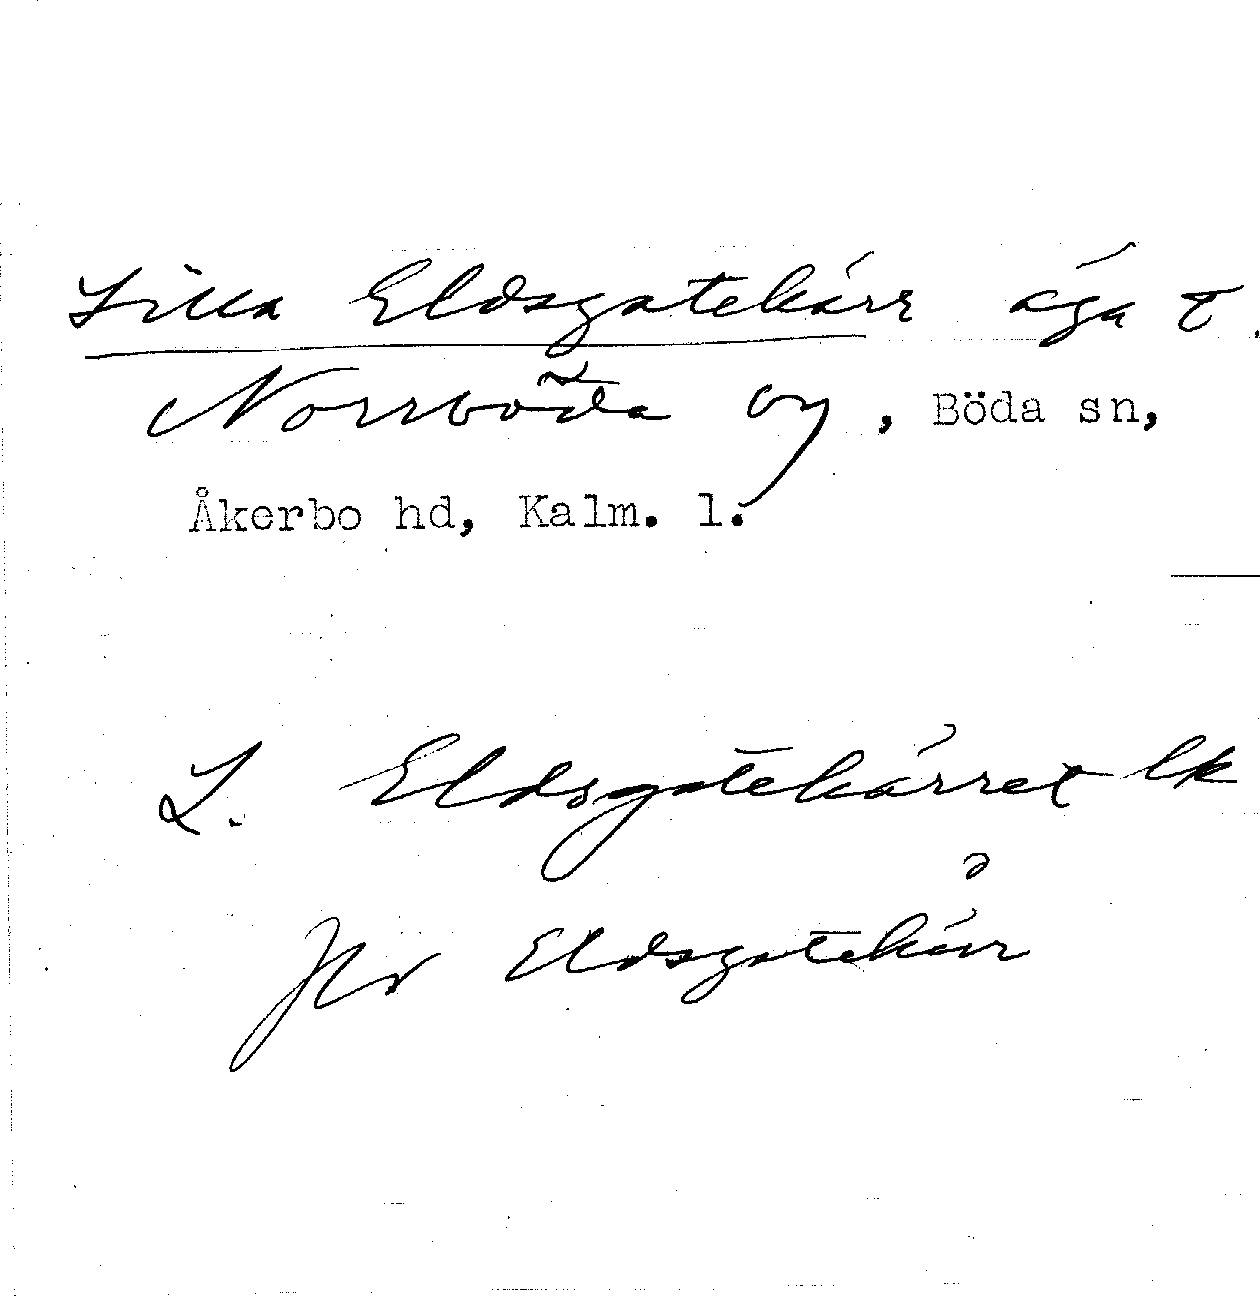 Lilla Eldsgatekärr äga t.
Norrböda by, Böda sn,
Åkerbo hd, Kalm. l.
L. Eldsgatekärret lk
Jfr Eldsgatekärr